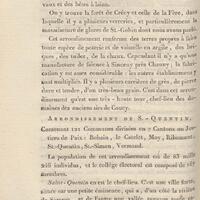 vaux et des bêtes à laine.
On y trouve la forêt de Crécy et celle de la Fère, dans
laquelle il y a plusieurs verreries, et particulièrement la
manufacture de glaces de St.-Gobin dont nous avons parlé.
Cet arrondissement renferme des terres propres à faire
toute espèce de poterie et de vaisselle en argile, des bri-
ques, des tuiles, de la chaux. Cependant il n'y a qu'une
manufacture de faïence à Sinceny près Chauny; la fabri-
cation y est assez considérable: les autres établissemens
qui ont été faits en ce genre n'ont pas eu de succès. Ce
n'est que avec une très-haute tour, chef-lieu des do-
maines des anciens sires de Coucy.
ARRONDISSEMENT DE S.-QUENTIN.
Contenant 121 Communes divisées en 7 Cantons ou Jus-
tices de Paix: Bohain, le Catelet, Moy, Ribemont,
St.-Quentin, St.-Simon, Vermand.
La population de cet arrondissement est de 83 mille
individus, et le collége électoral est composé de
Saint-Quentin en est le chef-lieu. C'est une ville forte,
située sur une petite éminence, qui a, d'un côté la rivière